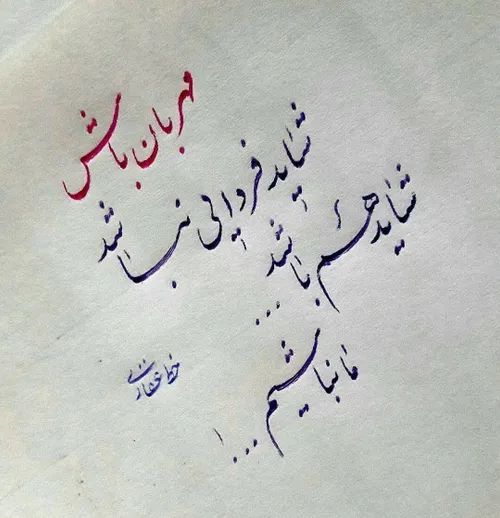 مهربان باش
شاید فردایی نباشد
شاید هم باشد...
ما نباشیم...!
خط